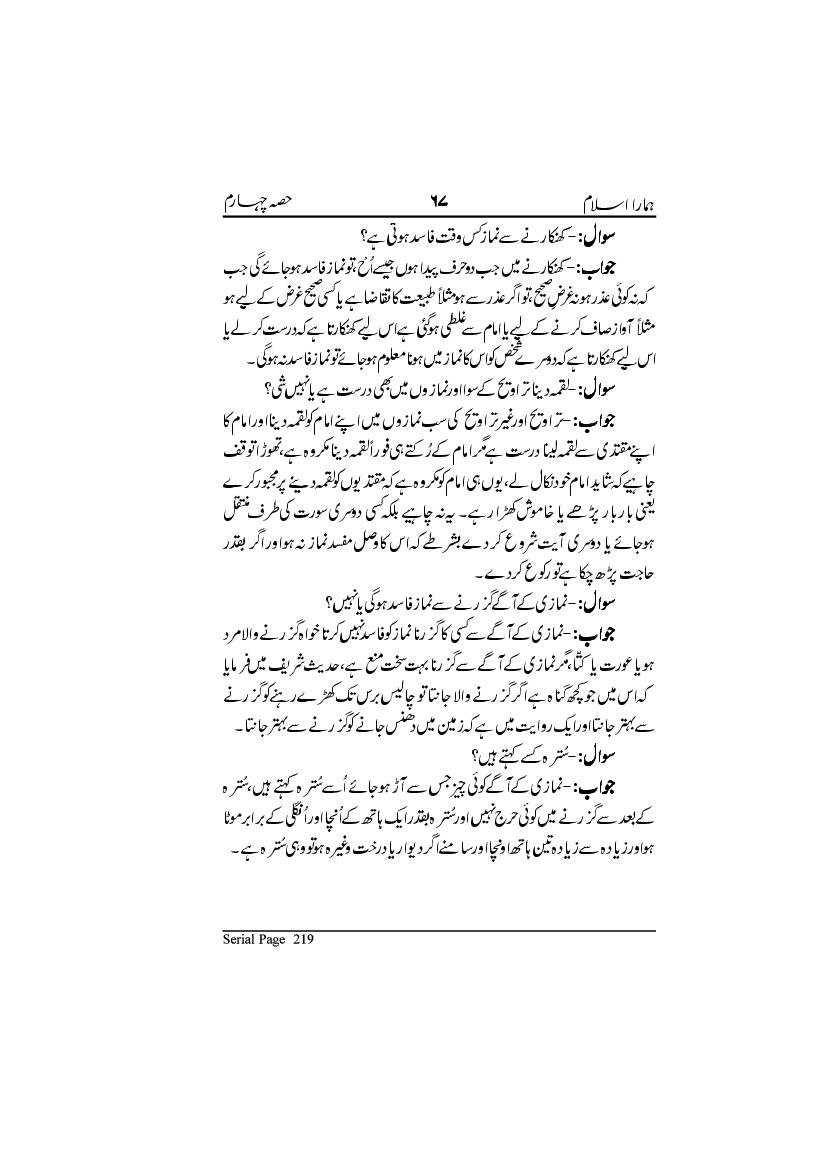 ہمارا اسلام ۶۷ حصہ چہارم
سوال:- کھنکارنے سے نماز کس وقت فاسد ہوتی ہے؟
جواب:- کھنکارنے میں جب دو حرف پیدا ہوں جیسے اُح، تو نماز فاسد ہو جائے گی جب
کہ نہ کوئی عذر ہو نہ غرضِ صحیح، تو اگر عذر سے ہو مثلاً طبیعت کا تقاضا ہے یا کسی صحیح غرض کے لیے ہو
مثلاً آواز صاف کرنے کے لیے یا امام سے غلطی ہو گئی ہے اس لیے کھنکارتا ہے کہ درست کر لے یا
اس لیے کھنکارتا ہے کہ دوسرے شخص کو اس کا نماز میں ہونا معلوم ہو جائے تو نماز فاسد نہ ہوگی۔
سوال:- لقمہ دینا تراویح کے سوا اور نمازوں میں بھی درست ہے یا نہیں شی؟
جواب:- تراویح اور غیر تراویح کی سب نمازوں میں اپنے امام کو لقمہ دینا اور امام کا
اپنے مقتدی سے لقمہ لینا درست ہے مگر امام کے رُکتے ہی فوراً لقمہ دینا مکروہ ہے، تھوڑا توقف
چاہیے کہ شاید امام خود نکال لے، یوں ہی امام کو مکروہ ہے کہ مقتدیوں کو لقمہ دینے پر مجبور کرے
یعنی بار بار پڑھے یا خاموش کھڑا رہے۔ یہ نہ چاہیے بلکہ کسی دوسری سورت کی طرف منتقل
ہو جائے یا دوسری آیت شروع کر دے بشرطے کہ اس کا وصل مفسد نماز نہ ہو اور اگر بقدر
حاجت پڑھ چکا ہے تو رکوع کر دے۔
سوال:- نمازی کے آگے گزرنے سے نماز فاسد ہوگی یا نہیں؟
جواب:- نمازی کے آگے سے کسی کا گزرنا نماز کو فاسد نہیں کرتا خواہ گزرنے والا مرد
ہو یا عورت یا کتّا، مگر نمازی کے آگے سے گزرنا بہت سخت منع ہے، حدیث شریف میں فرمایا
کہ اس میں جو کچھ گناہ ہے اگر گزرنے والا جانتا تو چالیس برس تک کھڑے رہنے کو گزرنے
سے بہتر جانتا اور ایک روایت میں ہے کہ زمین میں دھنس جانے کو گزرنے سے بہتر جانتا۔
سوال:- سُترہ کسے کہتے ہیں؟
جواب:- نمازی کے آگے کوئی چیز جس سے آڑ ہو جائے اُسے سُترہ کہتے ہیں، سُترہ
کے بعد سے گزرنے میں کوئی حرج نہیں اور سُترہ بقدر ایک ہاتھ کے اُنچا اور اُنگلی کے برابر موٹا
ہو اور زیادہ سے زیادہ تین ہاتھ اونچا اور سامنے اگر دیوار یا درخت وغیرہ ہو تو وہی سُترہ ہے۔
Serial Page 219